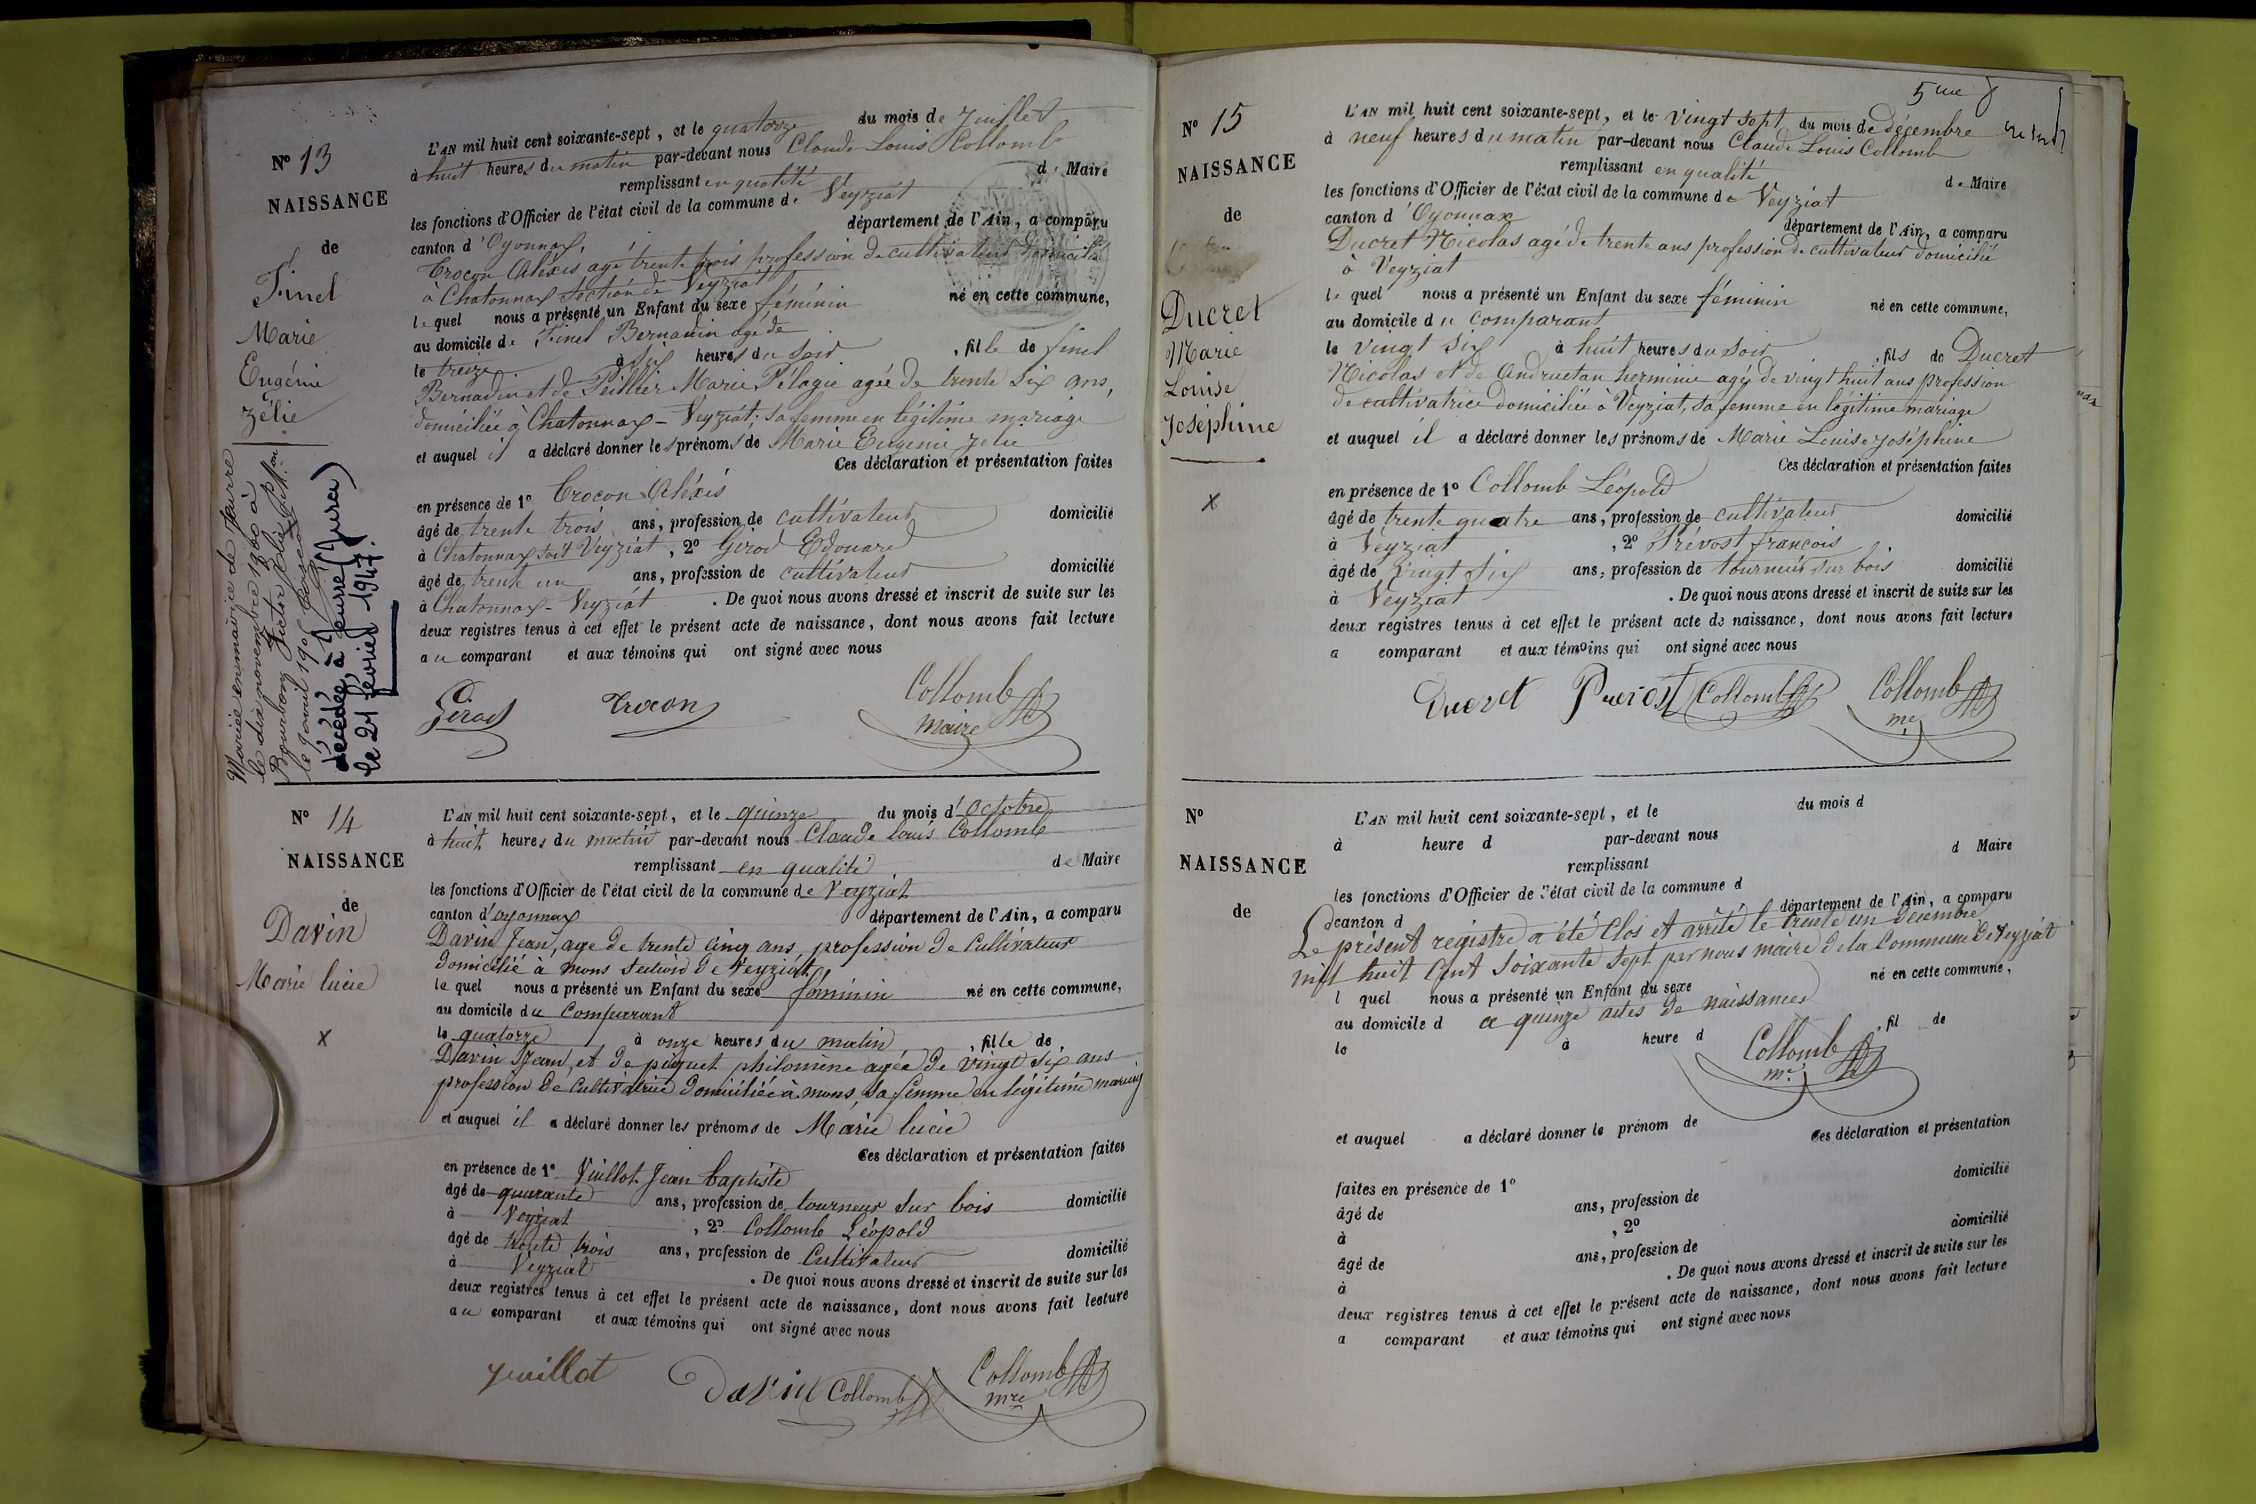 N° 13
NAISSANCE
de
Finel
Marie
Eugénie
Zélie
Mariée en mairie de Jeurre
le dix novembre 1900 à
Bourbon Victor
le 9 avril 190
décédée à Jeurre (Jura)
le 21 février 1947.
L'AN mil huit cent soixante-sept, et le quatorze du mois de Juillet
à huit heures du matin par-devant nous Claude Louis Collomb
remplissant en qualité de Maire
les fonctions d'Officier de l'état civil de la commune de Veyziat
canton d'Oyonnax, département de l'Ain, a comparu
Crocon Aléxis agé trente trois profession de cultivateur domicilié
à Chatonnax section de Veyziat
lequel nous a présenté un Enfant du sexe féminin né en cette commune,
au domicile de Finel Bernadin agé de
le treize à six heures du soir, fille de finel
Bernadin et de Peillier Marie Pélagie agée de trente six ans,
domiciliée à Chatonnax - Veyziat; sa femme en légitime mariage
et auquel il a déclaré donner les prénoms de Marie Eugénie Zélie
Ces déclaration et présentation faites
en présence de 1° Crocon Aléxis
âgé de trente trois ans, profession de cultivateur domicilié
à Chatonnax Veyziat, 2° Girod Edouard
âgé de trente un ans, profession de cultivateur domicilié
à Chatonnax - Veyziat. De quoi nous avons dressé et inscrit de suite sur les
deux registres tenus à cet effet le présent acte de naissance, dont nous avons fait lecture
au comparant et aux témoins qui ont signé avec nous
Girod Crocon Collomb
maire
N° 14
NAISSANCE
de
Davin
Marie lucie
x
L'AN mil huit cent soixante-sept, et le quinze du mois d'Octobre
à huit heures du matin par-devant nous Claude Louis Collomb
remplissant en qualité de Maire
les fonctions d'Officier de l'état civil de la commune de Veyziat
canton d'oyonnax département de l'Ain, a comparu
Davin Jean, age de trente cinq ans, profession de Cultivateur
domicilié à mons section de Veyziat
lequel nous a présenté un Enfant du sexe féminin né en cette commune,
au domicile du Comparant
le quatorze à onze heures du matin, fille de
Davin Jean, et de piquet philomène agée de vingt six ans
profession de Cultivatrice domiciliée à mons, sa femme en légitime mariag
et auquel il a déclaré donner les prénoms de Marie lucie
Ces déclaration et présentation faites
en présence de 1° Vuillot Jean baptiste
âgé de quarante ans, profession de tourneur sur bois domicilié
à Veyziat, 2° Collomb Léopold
âgé de trente trois ans, profession de Cultivateur domicilié
à Veyziat. De quoi nous avons dressé et inscrit de suite sur les
deux registres tenus à cet effet le présent acte de naissance, dont nous avons fait lecture
au comparant et aux témoins qui ont signé avec nous
Vuillot Davin Collomb Collomb
mre
5me
N° 15
NAISSANCE
de
Ducret
Marie
Louise
Joséphine
x
L'AN mil huit cent soixante-sept, et le vingt sept du mois de décembre
à neuf heures du matin par-devant nous Claude Louis Collomb
remplissant en qualité de Maire
les fonctions d'Officier de l'état civil de la commune de Veyziat
canton d'Oyonnax département de l'Ain, a comparu
Ducret Nicolas agé de trente ans profession de cultivateur domicilié
à Veyziat
lequel nous a présenté un Enfant du sexe féminin né en cette commune,
au domicile du comparant
le vingt six à huit heures du soir, fils de Ducret
Nicolas et de Andruetan herminie agée de vingt huit ans profession
de cultivatrice domiciliée à Veyziat, sa femme en légitime mariage
et auquel il a déclaré donner les prénoms de Marie Louise Joséphine
Ces déclaration et présentation faites
en présence de 1° Collomb Léopold
âgé de trente quatre ans, profession de cultivateur domicilié
à Veyziat, 2° Prévost françois
âgé de vingt six ans, profession de tourneur sur bois domicilié
à Veyziat. De quoi nous avons dressé et inscrit de suite sur les
deux registres tenus à cet effet le présent acte de naissance, dont nous avons fait lecture
a comparant et aux témoins qui ont signé avec nous
Ducret Prevost Collomb Collomb
me
N°
NAISSANCE
de
L'AN mil huit cent soixante-sept, et le du mois d
à heure d par-devant nous
remplissant d Maire
les fonctions d'Officier de l'état civil de la commune d
canton d département de l'Ain, a comparu
Le présent registre a été Clos et arrêté le trente un décembre
mil huit Cent soixante sept par nous maire de la Commune de Veyziat
l quel nous a présenté un Enfant du sexe né en cette commune,
au domicile d a quinze actes de naissances
le à heure d, fil de
Collomb
me
et auquel a déclaré donner le prénom de
Ces déclaration et présentation
faites en présence de 1° domicilié
âgé de ans, profession de
à , 2° domicilié
âgé de ans, profession de
à . De quoi nous avons dressé et inscrit de suite sur les
deux registres tenus à cet effet le présent acte de naissance, dont nous avons fait lecture
a comparant et aux témoins qui ont signé avec nous